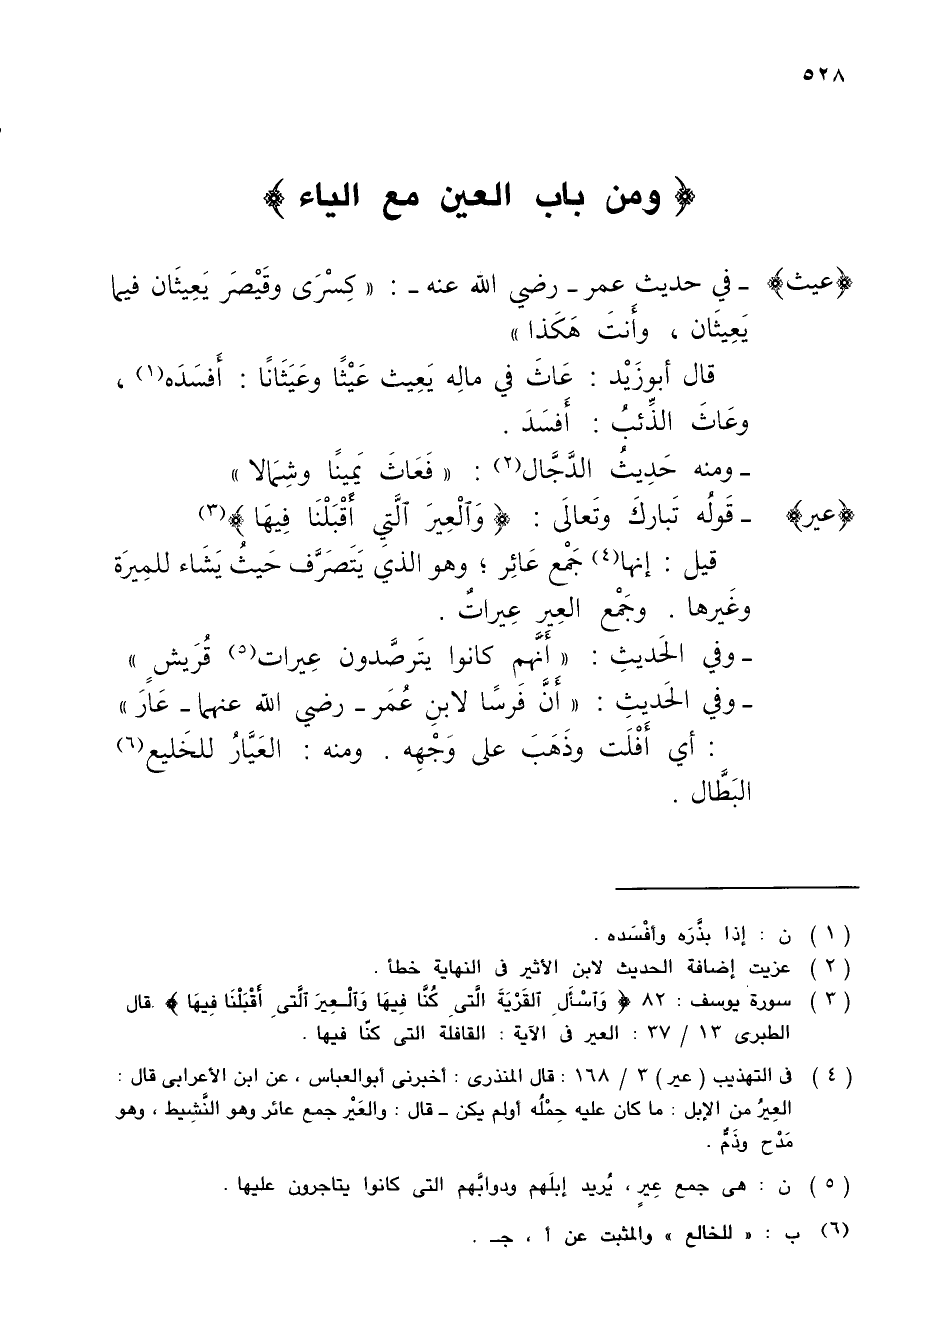 ٥٢٨
﴿ ومن باب العين مع الياء ﴾
﴿عيث﴾ ـ في حديث عمر ـ رضي الله عنه ـ : « كِسْرَى وقَيْصَرَ يَعِيثَان فيما
يَعِيثَان ، وأَنتَ هَكَذا »
قال أبوزَيْد : عَاثَ في مالِه يَعِيث عَيْثًا وعَيَثَانًا : أَفسَدَه(١) ،
وعَاثَ الذِّئبُ : أَفسَدَ .
ـ ومنه حَدِيثُ الدَّجَّال(٢) : « فَعَاثَ يَمِينًا وشِمَالا »
﴿عير﴾ ـ قَولُه تَبارك وتَعالَى : ﴿ وَٱلْعِيرَ ٱلَّتِي أَقْبَلْنَا فِيهَا ﴾(٣)
قيل : إنها(٤) جَمْع عَائِر ؛ وهو الذي يَتَصَرَّف حَيثُ يَشَاء للمِيرَة
وغَيرها . وجَمْع العِيرِ عِيراتٌ .
ـ وفي الحَديثِ : « أَنَّهم كانوا يتَرصَّدون عِيرات(٥) قُرَيشٍ »
ـ وفي الحَديثِ : « أَنَّ فَرسًا لابنِ عُمَر ـ رضي الله عنهما ـ عَارَ »
: أي أَفْلَت وذَهَبَ على وَجْهِه . ومنه : العَيَّارُ للخَلِيع(٦)
البَطَّال .
( ١ ) ن : إذا بذَّرَه وأفْسَده .
( ٢ ) عزيت إضافة الحديث لابن الأثير فى النهاية خطأ .
( ٣ ) سورة يوسف : ٨٢ ﴿ وَٱسْأَلِ ٱلقَرْيَةَ الَّتِى كُنَّا فِيهَا وَٱلْعِيرَ ٱلَّتِى أَقْبَلْنَا فِيهَا ﴾ . قال
الطبرى ١٣ / ٣٧ : العير فى الآية : القافلة التى كنّا فيها .
( ٤ ) فى التهذيب ( عير ) ٣ / ١٦٨ : قال المنذرى : أخبرنى أبوالعباس ، عن ابن الأعرابى قال :
العِيرُ من الإبل : ما كان عليه حِمْلُه أولم يكن ـ قال : والعَيْر جمع عائر وهو النَّشِيط ، وهو
مَدْح وذَمٌّ .
( ٥ ) ن : هى جمع عِيرٍ ، يُريد إبلَهم ودوابَّهم التى كانوا يتاجرون عليها .
(٦) ب : « للخالع » والمثبت عن أ ، جـ .